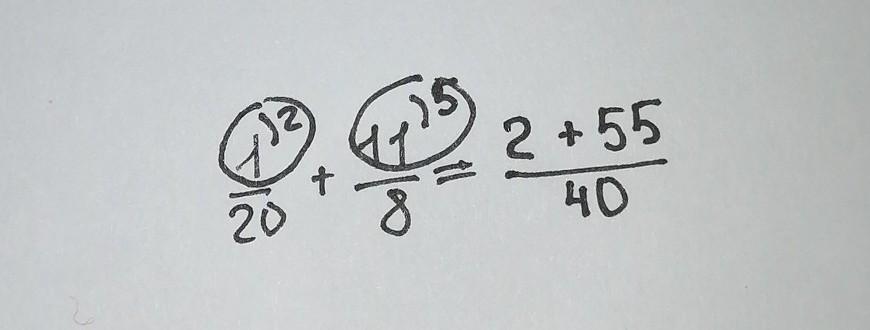 1⁾² / 20 + 11⁾⁵ / 8 = 2 + 55 / 40